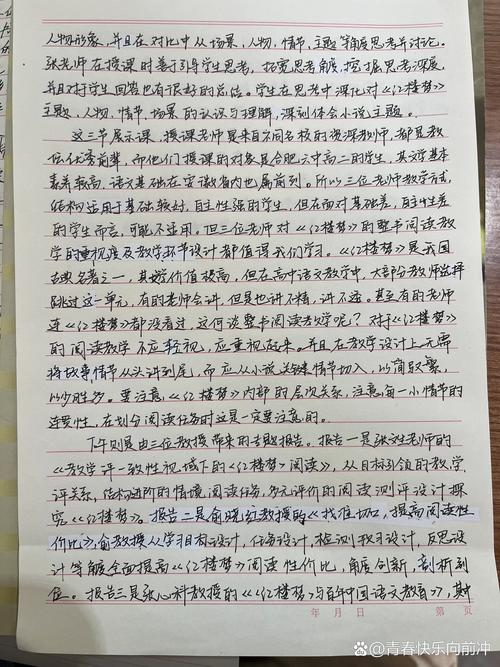 人物形象，并且在对比中从场景，人物，情节，主题等角度思考并讨论。
张老师在授课时善于引导学生思考，拓宽思考角度，挖掘思考深度，
并且对于学生回答也有很好的总结。学生在思考中深化对《红楼梦》
主题、人物、情节、场景的认识与理解，深刻体会小说主题。
这三节展示课，授课老师是来自不同名校的资深教师，都是教
坛优秀前辈，而他们授课的对象是合肥六中高二的学生，其文学基本
素养较高，语文基础在安徽省内也属前列。所以三位老师教学方式，
结构适用于基础较好，自主性强的学生，但在面对基础差，自主性差
的学生而言，可能不适用，但三位老师对《红楼梦》的整书阅读教
学的重视度及教学环节设计都值得我们学习。《红楼梦》是我国
古典名著之一，其价值极高，但在高中语文教学中，大部分教师选择
跳过这一单元，有的老师会讲，但是也讲不精，讲不透。甚至有的老师
连《红楼梦》都没看过，这何谈整书阅读教学呢？对于《红楼梦》
的阅读教学不应轻视，应重视起来。并且在教学设计上无需
将故事情节从头讲到尾，而应从小说关键情节切入，以简驭繁，
以少胜多。要注意，《红楼梦》内部的层次关系，注意每一小情节的
连贯性，在划分阅读任务时这是一定要注意的。
下午则是由三位教授带来的专题报告。报告一是张老师的
《教学评一致性视域下的《红楼梦》阅读》，从目标引领的教学
评关系，结构进阶的情境阅读任务，多元评价的阅读测评设计探
究《红楼梦》。报告二是俞晓红教授的《找准切口，提高阅读性
价比》，俞教授从学习目标设计，任务设计，检测练习设计，反思设
计等角度全面提高《红楼梦》阅读性价比，角度创新，剖析到
位。报告三是张心科教授的《《红楼梦》与百年中国语文教育》，其中
年 月 日
第 页
头条 @青春快乐向前冲